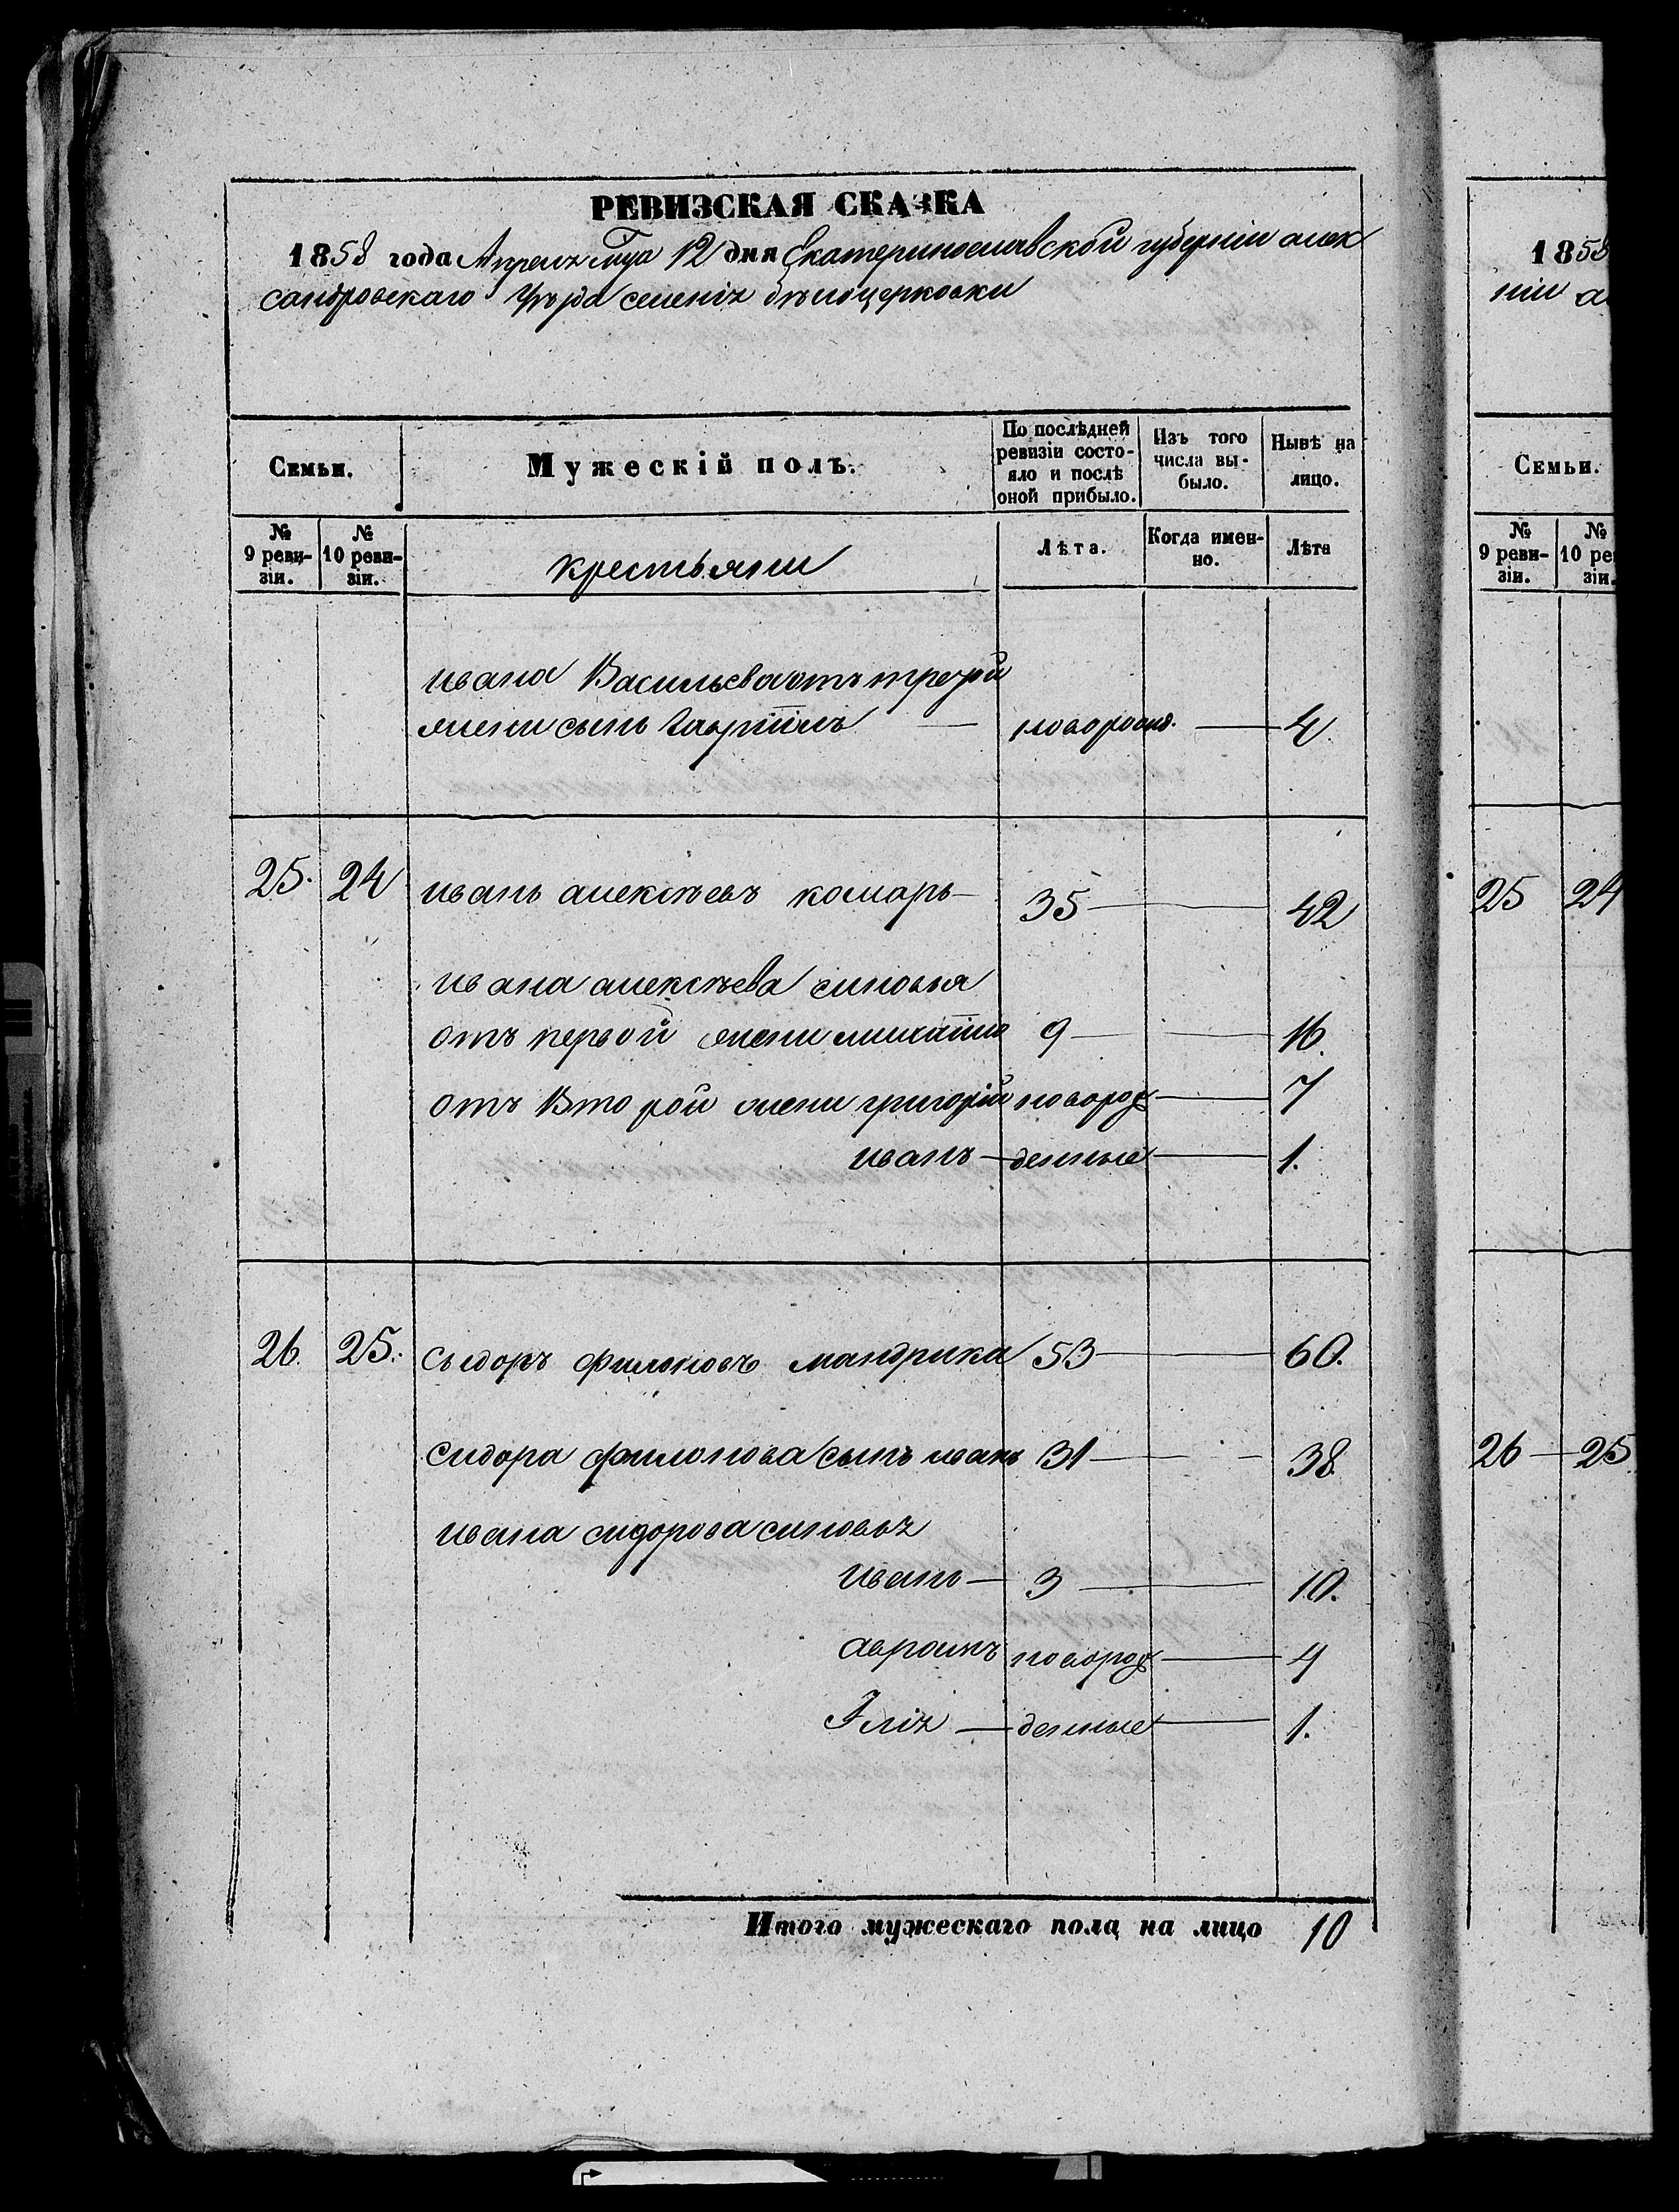 РЕВИЗСКАЯ СКАЗКА
1858 года Апреля мца 12 дня Екатеринославской губерніи алек
сандровскаго уѣзда селенія бѣлоцерковки
Семьи.
Мужескій полъ.
По послѣдней ревизіи состояло и послѣ оной прибыло.
Изъ того числа выбыло.
Нынѣ на лицо.
№ 9 ревизіи.
№ 10 ревизіи.
крестьяни
Лѣта.
Когда именно.
Лѣта
ивана Васильева отъ третей
жени сынъ Гавріилъ — новорожд. — 4
25. 24 иванъ алексѣевъ комаръ — 35 — 42
ивана алексѣева синовья
отъ первой жени михаилъ 9 — 16.
отъ Второй жени григорій новорож — 7
иванъ — денные — 1.
26. 25. сыдоръ филоновъ мандрика 53 — 60.
сидора филонова сынъ иванъ 31 — 38.
ивана сидорова синовья
иванъ — 3 — 10.
авраамъ новорож — 4
Ілія — денные — 1.
Итого мужескаго пола на лицо 10
1858
ніи а
Семьи.
№ 9 ревизіи.
№ 10 ре
зіи.
25 24
26 — 25